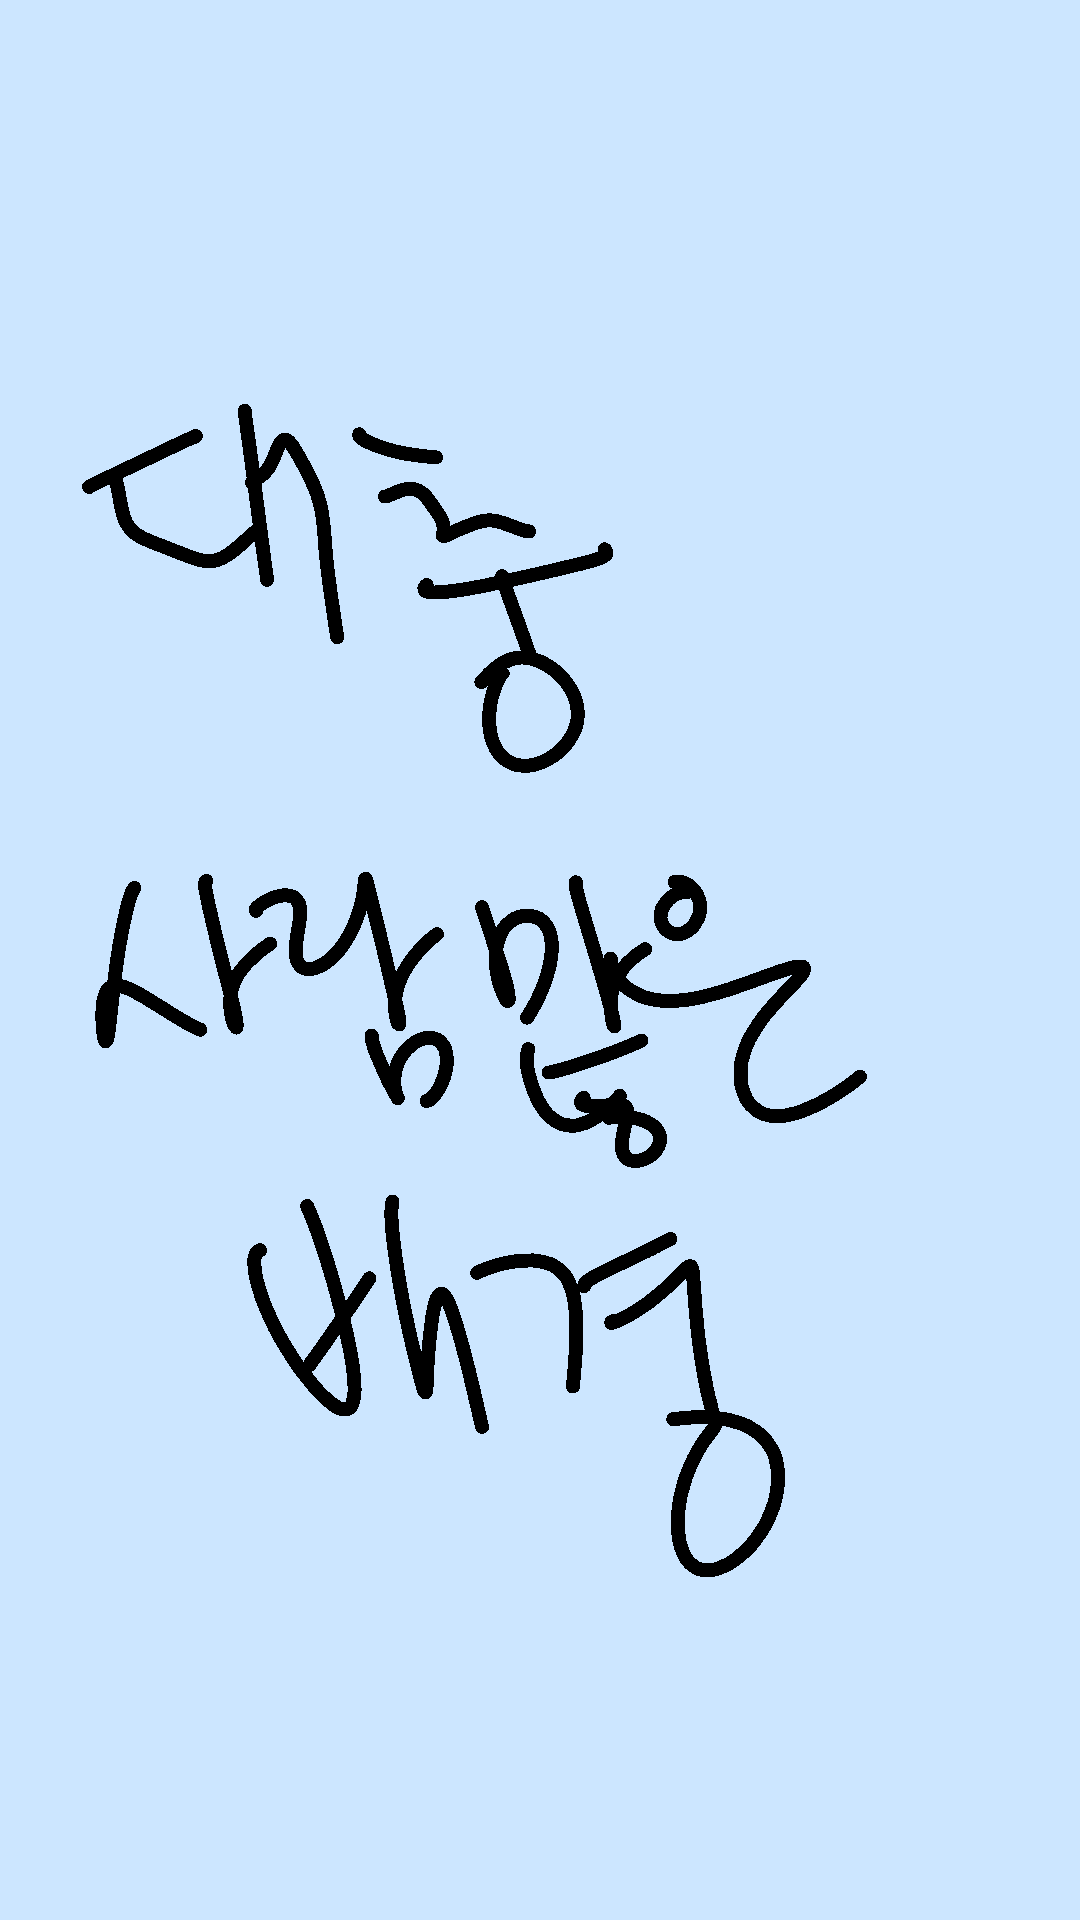 대중
사람많은
배경